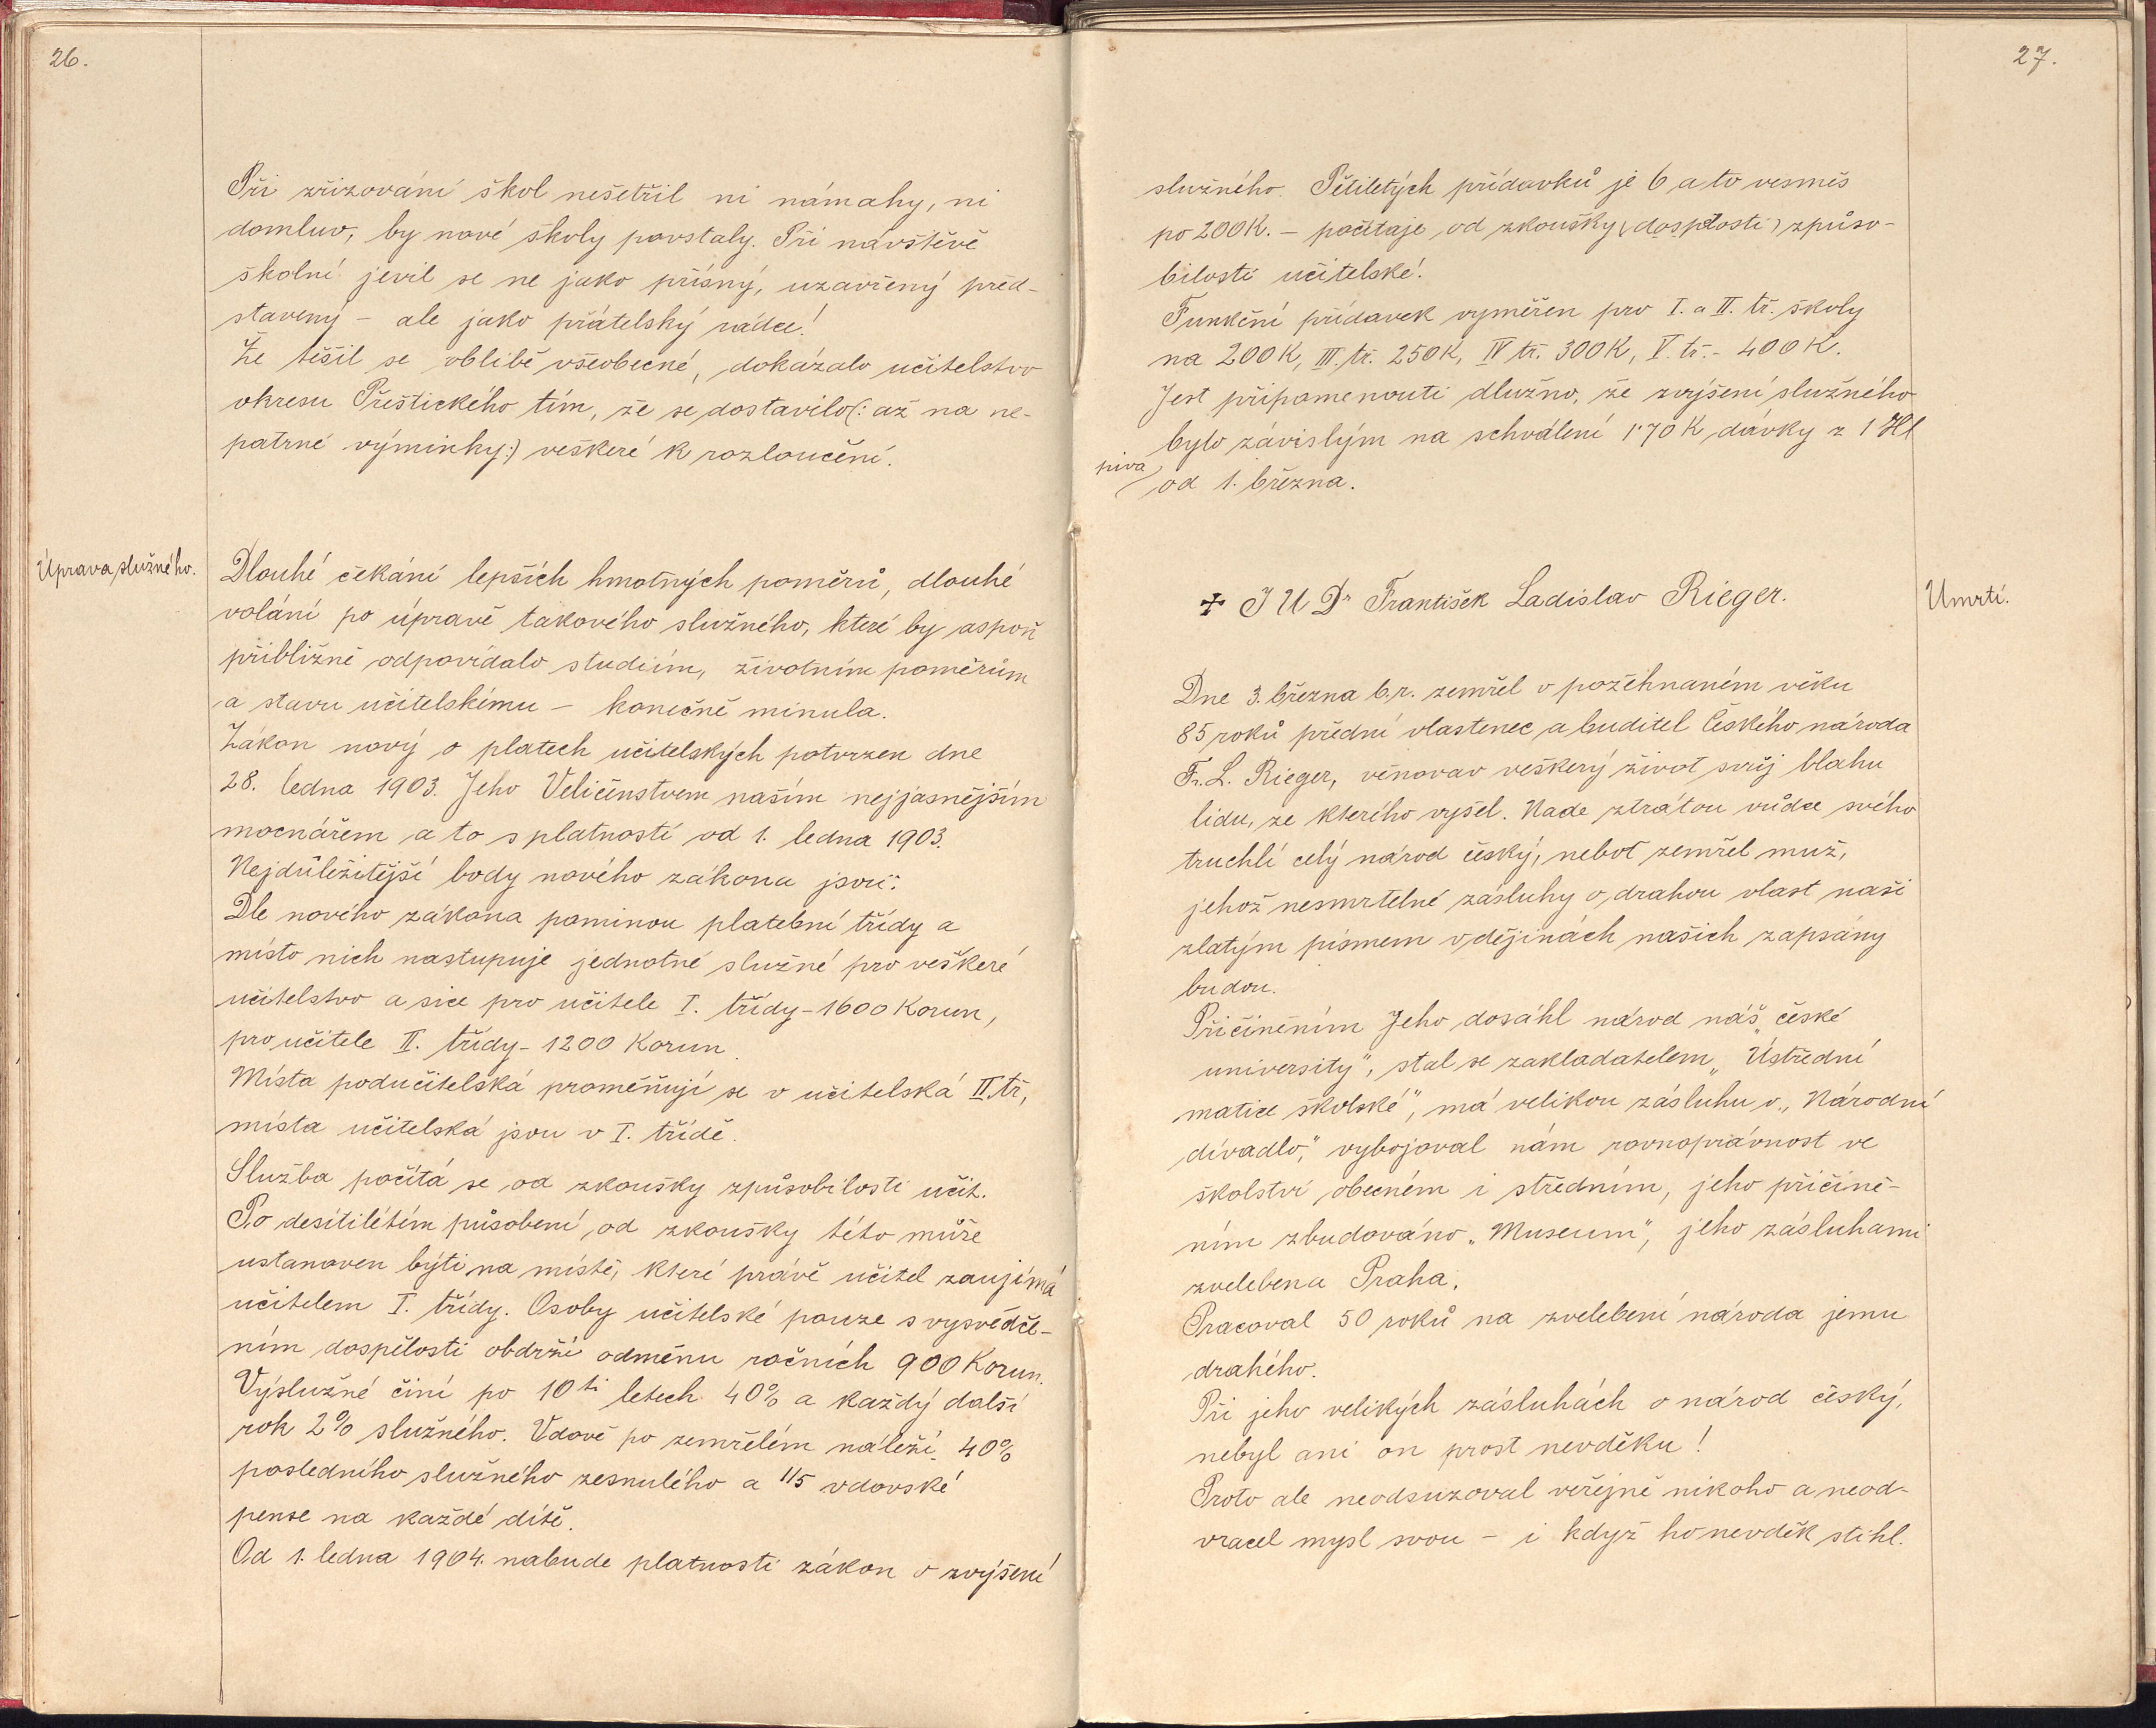 26.
Při zřizování škol nešetřil ni námahy, ni
domluv, by nové školy povstaly. Při návštěvě
školní jevil se ne jako přísný, uzavřený před-
stavený – ale jako přátelský rádce!
Že těšil se oblibě všeobecné, dokázalo učitelstvo
okresu Přeštického tím, že se dostavilo (: až na ne-
patrné výminky :) veškeré k rozloučení.
Úprava služného.
Dlouhé čekání lepších hmotných poměrů, dlouhé
volání po úpravě takového služného, které by aspoň
přibližně odpovídalo studiím, životním poměrům
a stavu učitelskému – konečně minula.
Zákon nový o platech učitelských potvrzen dne
28. ledna 1903. Jeho Veličenstvem naším nejjasnějším
mocnářem a to s platností od 1. ledna 1903.
Nejdůležitější body nového zákona jsou:
Dle nového zákona pominou platební třídy a
místo nich nastupuje jednotné služné pro veškeré
učitelstvo a sice pro učitele I. třídy – 1600 Korun,
pro učitele II. třídy – 1200 Korun.
Místa podučitelská proměňují se v učitelská II. tř,
místa učitelská jsou v I. třídě.
Služba počítá se od zkoušky způsobilosti učit.
Po desítiletém působení od zkoušky této může
ustanoven býti na místě, které právě učitel zaujímá
učitelem I. třídy. Osoby učitelské pouze s vysvědče-
ním dospělosti obdrží odměnu ročních 900 Korun.
Výslužné činí po 10ti letech 40% a každý další
rok 2% služného. Vdově po zemřelém náleží 40%
posledního služného zesnulého a 1/5 vdovské
pense na každé dítě.
Od 1. ledna 1904. nabude platnosti zákon o zvýšení
27.
služného. Pětiletých přídavků je 6 a to vesměs
po 200 K. – počítaje od zkoušky (dospělosti) způso-
bilosti učitelské.
Funkční přídavek vyměřen pro I. a II. tř. školy
na 200 K, III. tř. 250 K, IV tř. 300 K, V. tř. – 400 K.
Jest připamenouti dlužno, že zvýšení služného
bylo závislým na schválení 1·70 K dávky z 1 Hl
piva od 1. března.
✝ J U Dr František Ladislav Rieger.
Umrtí.
Dne 3. března b. r. zemřel v požehnaném věku
85 roků přední vlastenec a buditel Českého národa
Fr. L. Rieger, věnovav veškerý život svůj blahu
lidu, ze kterého vyšel. Nade ztrátou vůdce svého
truchlí celý národ český, neboť zemřel muž,
jehož nesmrtelné zásluhy o drahou vlast naši
zlatým písmem v dějinách našich zapsány
budou.
Přičiněním Jeho dosáhl národ náš „české
university", stal se zakladatelem „Ústřední
matice školské", má velikou zásluhu o „Národní
divadlo," vybojoval nám rovnoprávnost ve
školství obecném i středním, jeho přičině-
ním zbudováno „Museum", jeho zásluhami
zvelebena Praha.
Pracoval 50 roků na zvelebení národa jemu
drahého.
Při jeho velikých zásluhách o národ český,
nebyl ani on prost nevděku!
Proto ale neodsuzoval veřejně nikoho a neod-
vracel mysl svou – i když ho nevděk stihl.